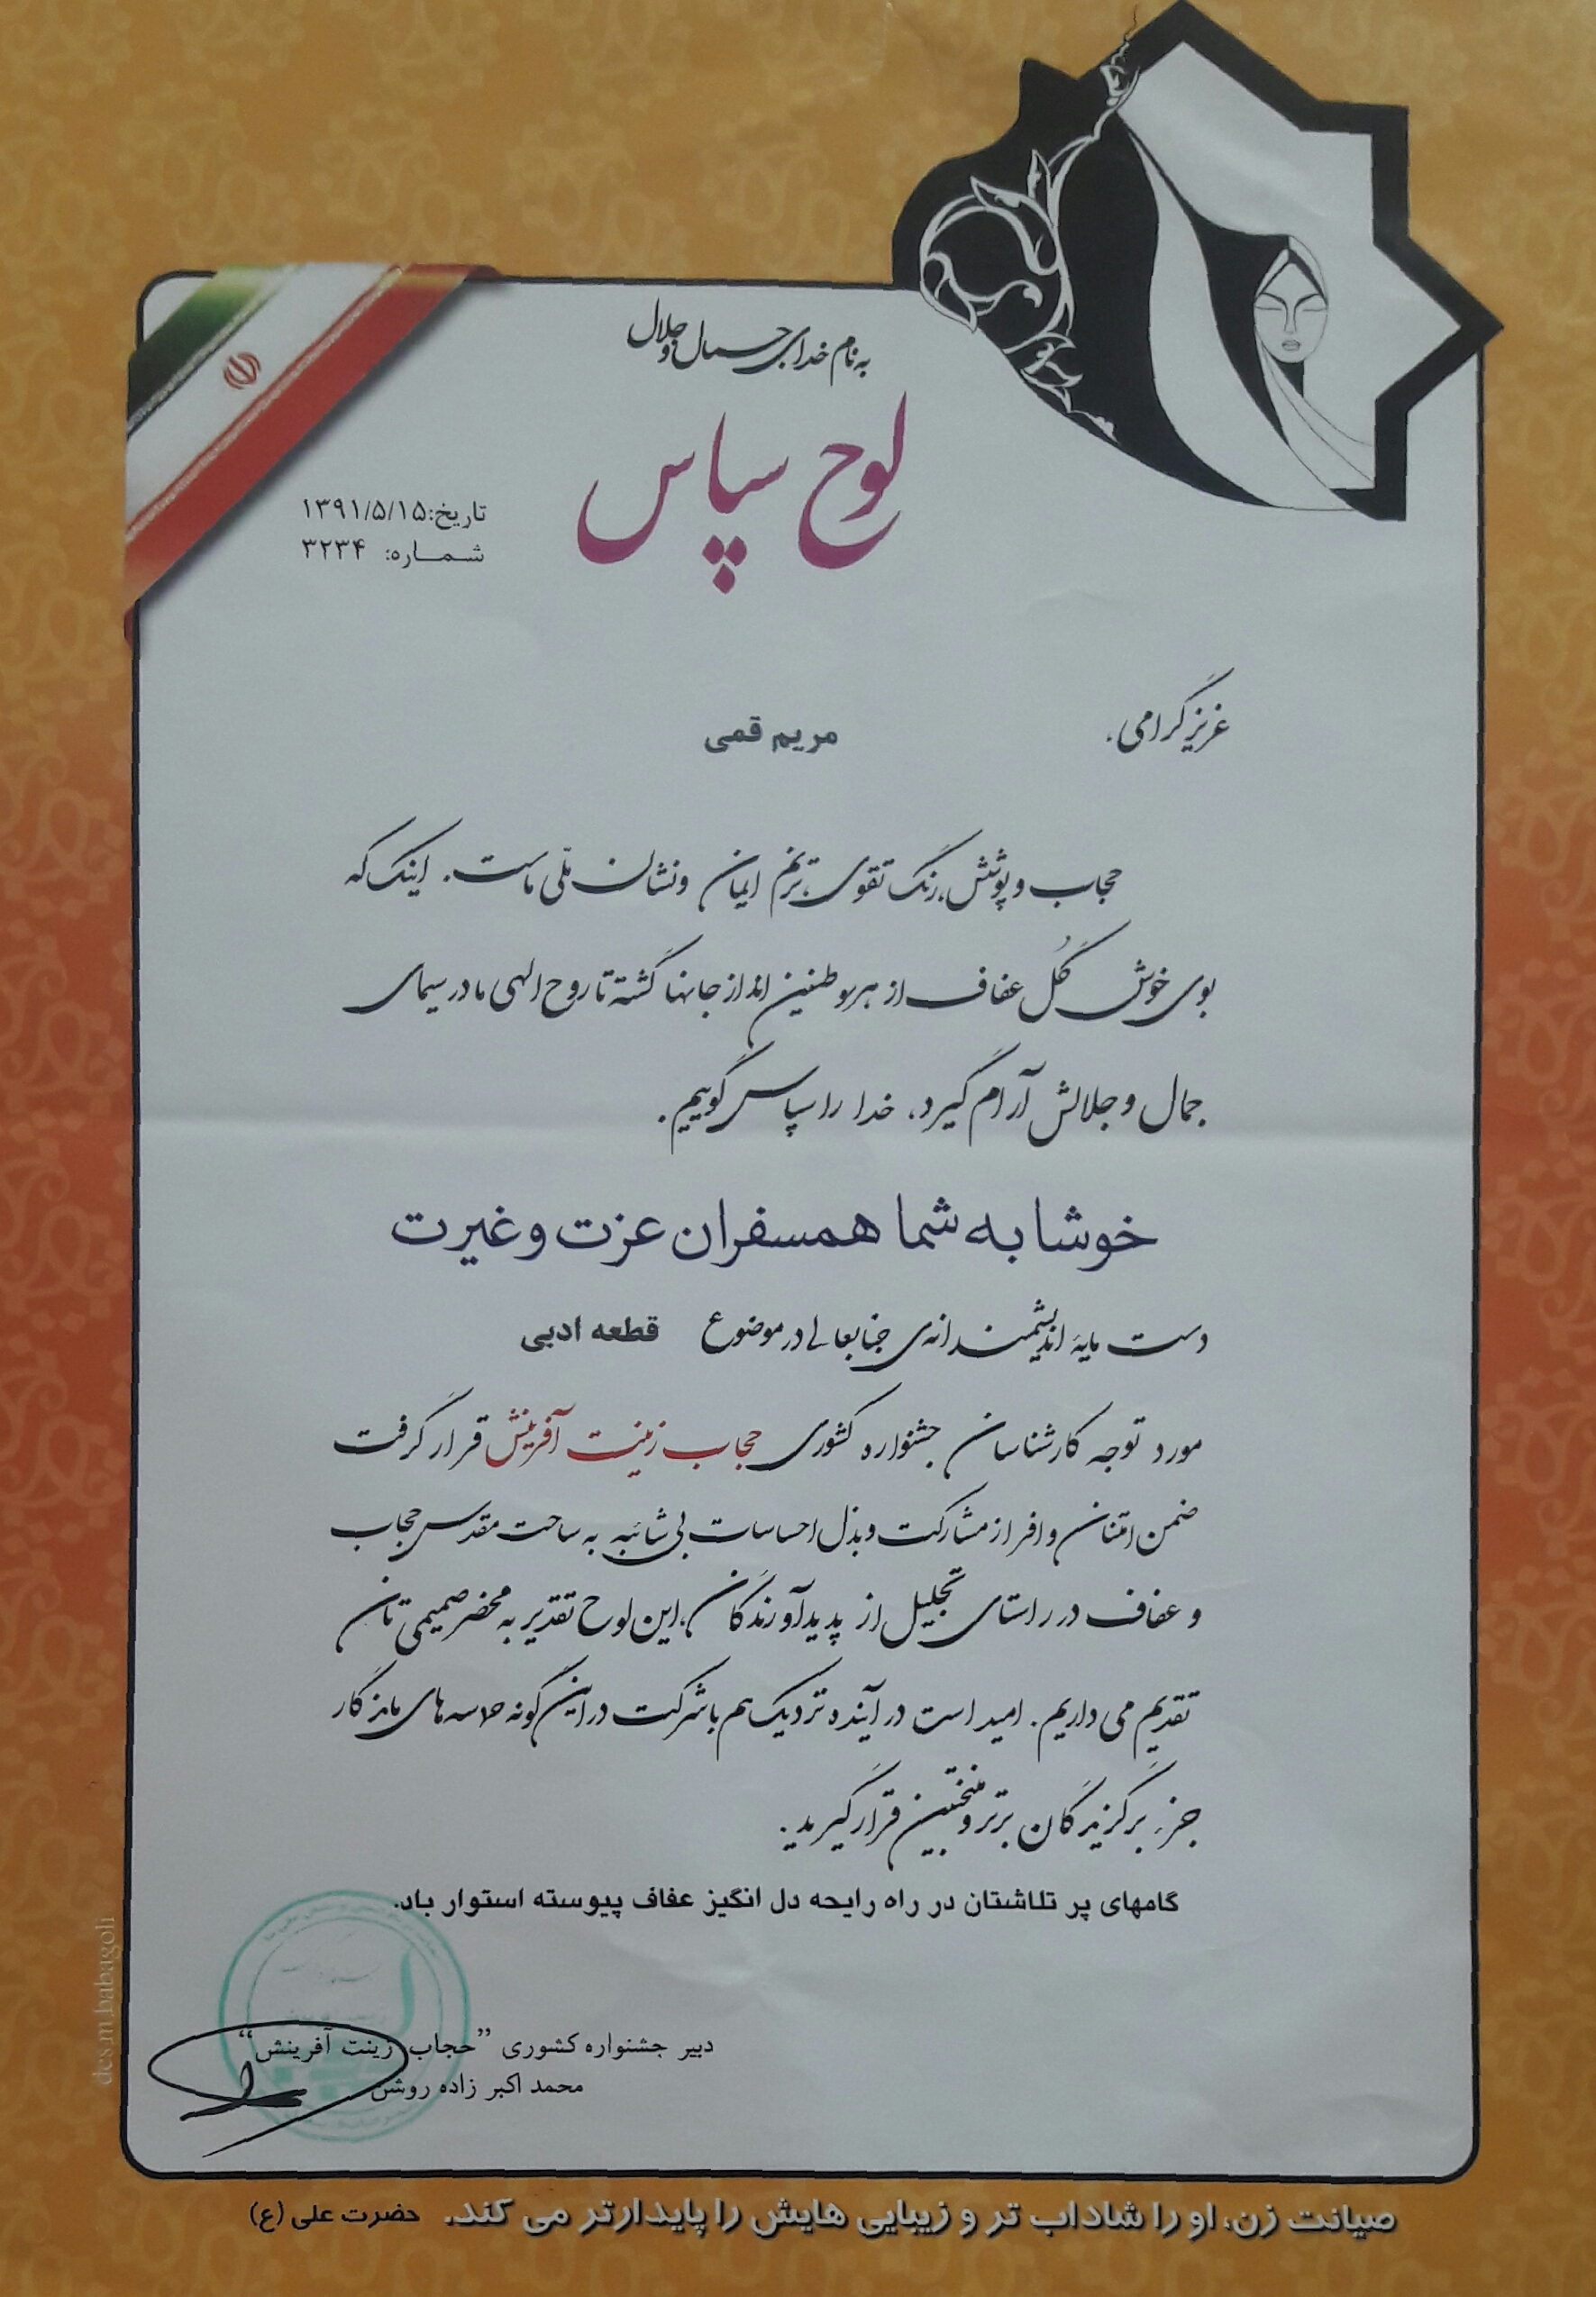 به نام خدای جمال و جلال
لوح سپاس
تاریخ: ۱۳۹۱/۵/۱۵
شماره: ۳۲۳۴
عزیز گرامی، مریم قمی
حجاب و پوشش، رنگ تقوی، ترنم ایمان و نشان ملّی ماست. اینک که
بوی خوش گُل عفاف از هر سو طنین انداز جانها گشته تا روح الهی ما در سیمای
جمال و جلالش آرام گیرد، خدا را سپاس گوییم.
خوشا به شما همسفران عزت و غیرت
دست مایهٔ اندیشمندانه‌ی جنابعالی در موضوع قطعه ادبی
مورد توجه کارشناسان جشنواره کشوری حجاب زینت آفرینش قرار گرفت
ضمن امتنان وافر از مشارکت و بذل احساسات بی شائبه به ساحت مقدس حجاب
و عفاف در راستای تجلیل از پدیدآورندگان، این لوح تقدیر به محضر صمیمی تان
تقدیم می داریم. امید است در آینده نزدیک هم با شرکت در این گونه حماسه های ماندگار
جزء برگزیدگان برتر و منتخبین قرار گیرید.
گامهای پر تلاشتان در راه رایحه دل انگیز عفاف پیوسته استوار باد.
دبیر جشنواره کشوری "حجاب زینت آفرینش"
محمد اکبر زاده روشن
صیانت زن، او را شاداب تر و زیبایی هایش را پایدارتر می کند. حضرت علی (ع)
des.m.babagoli